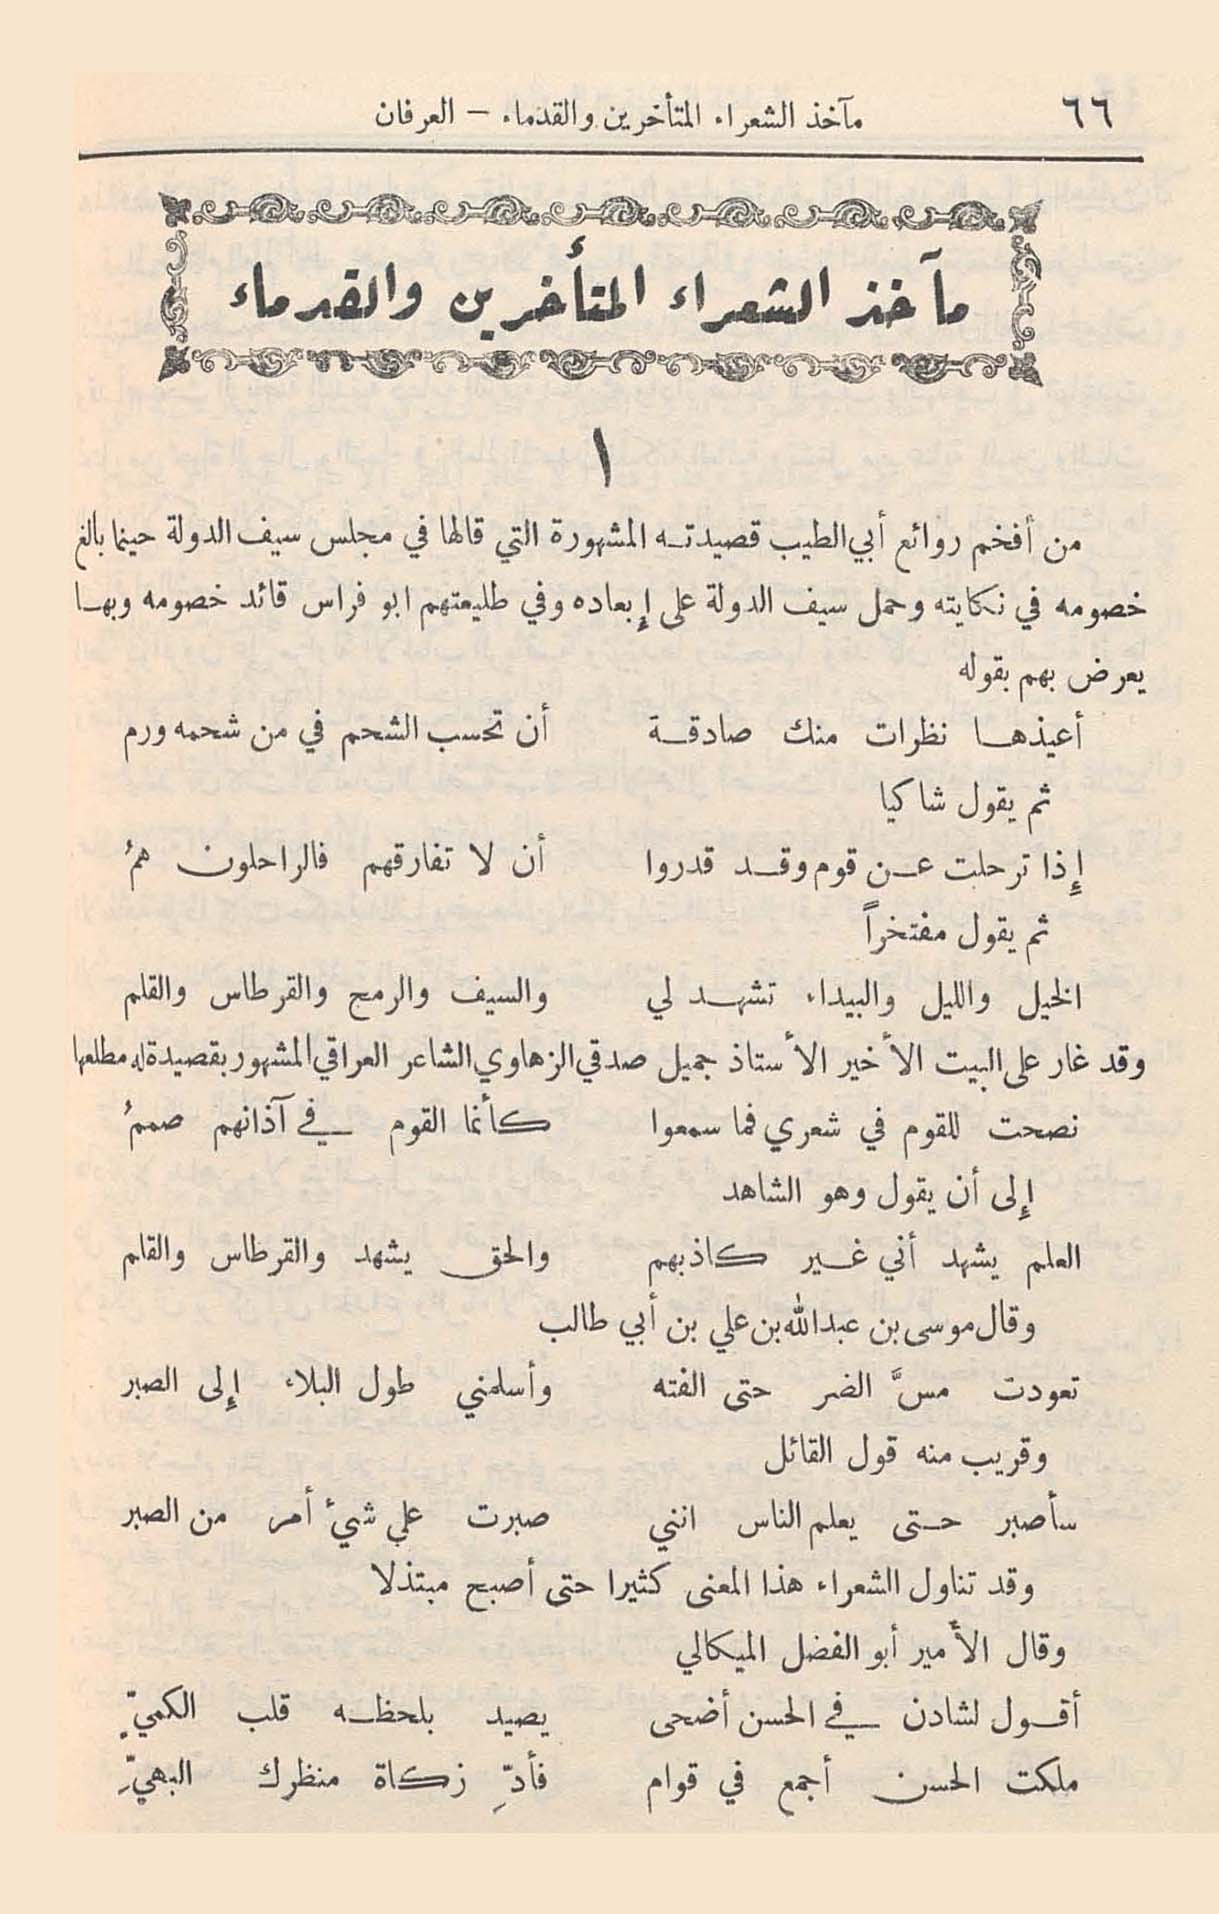 ٦٦
مآخذ الشعراء المتأخرين والقدماء – العرفان
مآخذ الشعراء المتأخرين والقدماء
١
من أفخم روائع أبي الطيب قصيدتـه المشهورة التي قالها في مجلس سيف الدولة حينما بالغ
خصومه في نكايته وحمل سيف الدولة على إبعاده وفي طليعتهم ابو فراس قائد خصومه وبهـا
يعرض بهم بقوله
أعيذهـا نظرات منك صادقـة أن تحسب الشحم في من شحمه ورم
ثم يقول شاكيا
إذا ترحلت عـن قوم وقـد قدروا أن لا تفارقهم فالراحلون همُ
ثم يقول مفتخراً
الخيل والليل والبيداء تشهـد لي والسيف والرمح والقرطاس والقلم
وقد غار على البيت الأخير الأستاذ جميل صدقي الزهاوي الشاعر العراقي المشهور بقصيدة له مطلعها
نصحت للقوم في شعري فما سمعوا كأنما القوم في آذانهم صممُ
إلى أن يقول وهو الشاهد
العلم يشهد أني غـير كاذبهم والحق يشهد والقرطاس والقلم
وقال موسى بن عبدالله بن علي بن أبي طالب
تعودت مسَّ الضر حتى الفته وأسلمني طول البلاء إلى الصبر
وقريب منه قول القائل
سأصبر حـتى يعلم الناس انني صبرت على شيءٍ أمر من الصبر
وقد تناول الشعراء هذا المعنى كثيرا حتى أصبح مبتذلا
وقال الأمير أبو الفضل الميكالي
أقـول لشادن في الحسن أضحى يصيد بلحظـه قلب الكميّ
ملكت الحسن أجمع في قوام فأدِّ زكاة منظرك البهيِّ